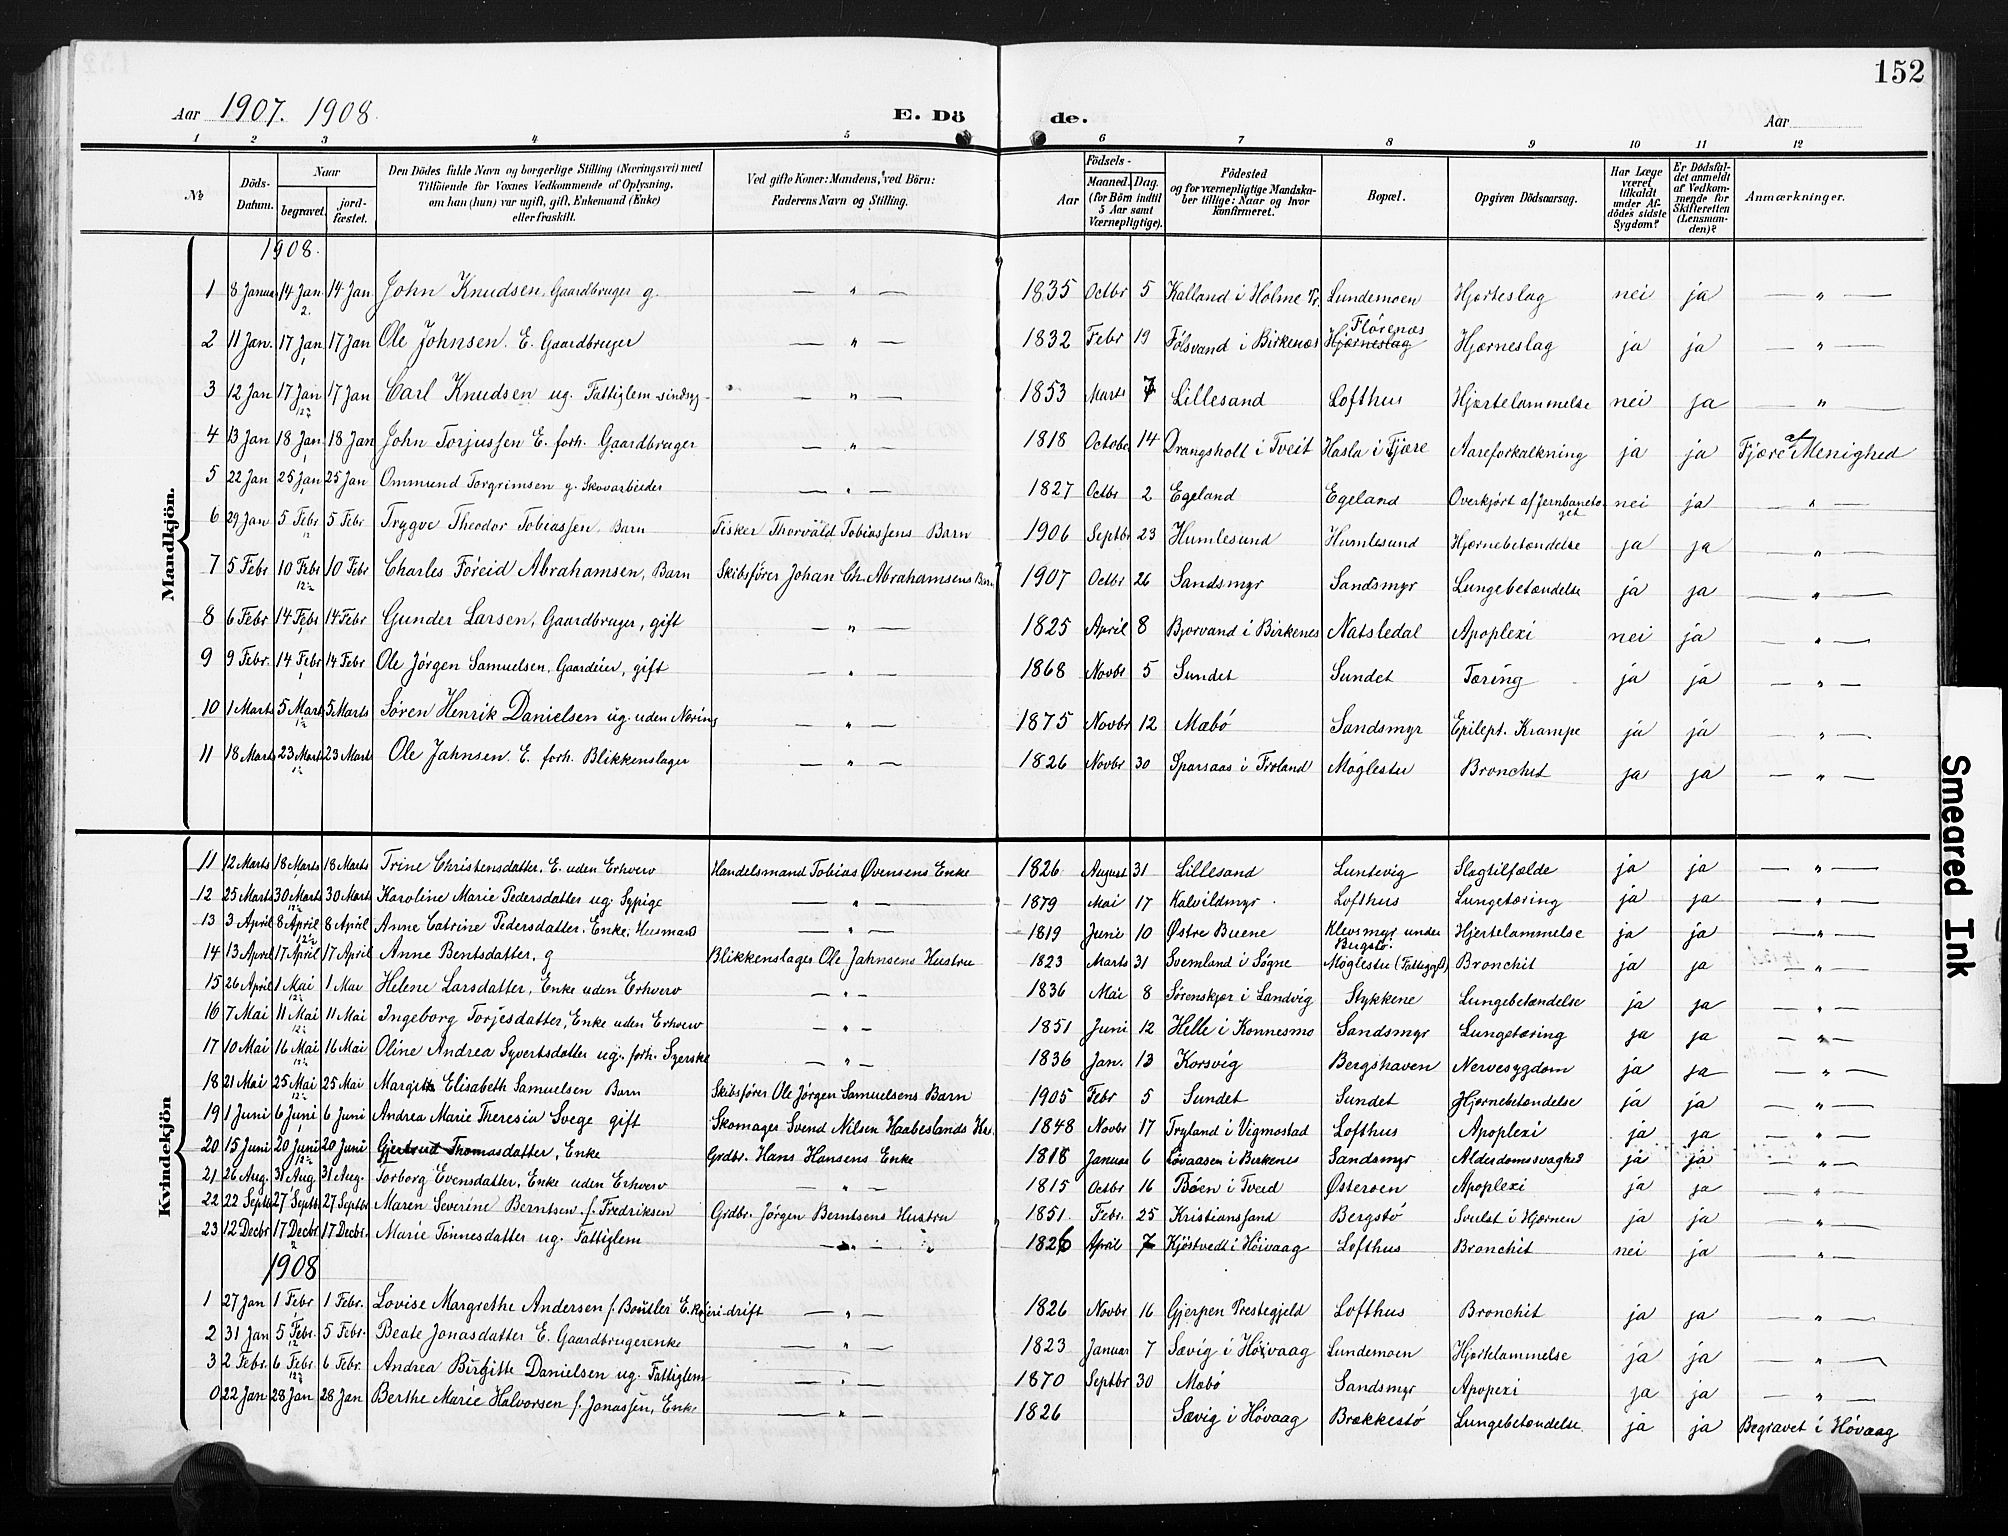 152
Aar 1907. 1908. E. Dö de. Aar
1 2 3 4 5 6 7 8 9 10 11 12
№ Döds-Datum. Naar begravet. jord-fæstet. Den Dödes fulde Navn og borgerlige Stilling (Næringsvei) med Tilföiende for Voxnes Vedkommende af Oplysning, om han (hun) var ugift, gift, Enkemand (Enke) eller fraskilt. Ved gifte Koner: Mandens, ved Börn: Faderens Navn og Stilling. Födsels- Aar Maaned. Dag. (for Börn indtil 5 Aar samt Værnepligtige). Födested og for værnepligtige Mandska-ber tillige: Naar og hvor konfirmeret. Bopæl. Opgiven Dödsaarsag. Har Læge været tilkaldt under Af-dödes sidste Sygdom? Er Dödsfal-det anmeldt af Vedkom-mende for Skifteretten (Lensman-den)? Anmærkninger.
Mandkjön.
1908.
1 8 Januar 14 Jan 2 14 Jan John Knudsen, Gaardbruger g. — " — 1835 Octbr 5 Kalland i Holme Pr. Lundemoen Hjerteslag nei ja — " —
2 11 Jan. 17 Jan 1 17 Jan Ole Johnsen. E. Gaardbruger — " — 1832 Febr 19 Fölsvand i Birkenæs Hjerneslag Flörenæs Hjerneslag ja ja — " —
3 12 Jan 17 Jan 12½ 17 Jan Carl Knudsen ug. Fattiglem sindsyg — " — 1853 Marts 7 Lillesand Lofthus Hjertelammelse nei ja — " —
4 13 Jan 18 Jan 1 18 Jan John Torjussen E. forh. Gaardbruger — " — 1818 October 14 Drangsholt i Tveit Hasla i Fjære Aareforkalkning ja ja Fjære af Menighed
5 22 Jan 25 Jan 1 25 Jan Ommund Torgrimsen g. Skovarbeider — " — 1827 Octbr 2 Egeland Egeland Overkjört af Jernbaneto-get nei ja — " —
6 29 Jan 5 Febr 12 5 Febr Trygve Theodor Tobiassen, Barn Fisker Thorvald Tobiassens Barn 1906 Septbr 23 Humlesund Humlesund Hjernebetændelse ja ja — " —
7 5 Febr 10 Febr 12½ 10 Febr Charles Föreid Abrahamsen, Barn Skibsförer Johan Ch. Abrahamsens Barn 1907 Octbr 26 Sandsmyr Sandsmyr Lungebetændelse ja ja — " —
8 6 Febr 14 Febr 1 14 Febr Gunder Larsen, Gaardbruger, gift — " — 1825 April 8 Bjorvand i Birkenes Natsledal Apoplexi nei ja — " —
9 9 Febr. 14 Febr 1 14 Febr Ole Jörgen Samuelsen, Gaardeier, gift — " — 1868 Novbr 5 Sundet Sundet Tæring ja ja — " —
10 1 Marts 5 Mart 1½ 5 Marts Sören Henrik Danielsen ug. uden Næring — " — 1875 Novbr 12 Mæbö Sandsmyr Epilept. Krampe ja ja — " —
11 18 Marts 23 Mart 1½ 23 Mart Ole Jahnsen. E. forh. Blikkenslager — " — 1826 Novbr 30 Sparsaas i Froland Möglestu Bronchit ja ja — " —
Kvindekjön
11 12 Marts 18 Marts 18 Marts Trine Christensdatter, E. uden Erhverv Handelsmand Tobias Ovensens Enke 1826 August 31 Lillesand Luntevig Slagtilfælde ja ja — " —
12 25 Marts 30 Marts 12½ 30 Marts Karoline Marie Pedersdatter ug. Sypige — " — 1879 Mai 17 Kalvildmyr Lofthus Lungetæring ja ja — " —
13 3 April 8 April 12½ 8 April Anne Catrine Pedersdatter. Enke, Husmands — " — 1819 Juni 10 Östre Buene Klevsmyr under Bergstö. Hjertelammelse ja ja — " —
14 13 April 17 April 17 April Anne Bentsdatter, g Blikkenslager Ole Jahnsens Hustru 1823 Marts 31 Svemland i Søgne Möglestu (Fattiggd) Bronchit ja ja — " —
15 26 April 1 Mai 12½ 1 Mai Helene Larsdatter, Enke uden Erhverv — " — 1836 Mai 8 Sörenskjær i Landvig Stykkene Lungebetændelse ja ja — " —
16 7 Mai 11 Mai 12½ 11 Mai Ingeborg Torjesdatter, Enke uden Erhverv — " — 1851 Juni 12 Helle i Konnesmo Sandsmyr Lungetæring ja ja — " —
17 10 Mai 16 Mai 12½ 16 Mai Oline Andrea Syvertsdatter ug. forh. Syerske — " — 1836 Jan. 13 Korsvig Bergshaven Nervesygdom ja ja — " —
18 21 Mai 25 Mai 12½ 25 Mai Margith Elisabeth Samuelsen Barn Skibsförer Ole Jörgen Samuelsens Barn 1905 Febr 5 Sundet Sundet Hjernebetændelse ja ja — " —
19 1 Juni 6 Juni 1 6 Juni Andrea Marie Theresia Svege gift Skomager Svend Nilsen Haabeslands Hu. 1848 Novbr 17 Tryland i Vigmostad Lofthus Apoplexi ja ja — " —
20 15 Juni 20 Juni 12½ 20 Juni Gjertrud Thomasdatter, Enke Grdbr. Hans Hansens Enke 1818 Januar 6 Lövaasen i Birkenes Sandsmyr Alderdomssvaghed ja ja — " —
21 26 Aug. 31 Aug 31 Aug. Torborg Evensdatter, Enke uden Erhverv — " — 1815 Octbr 16 Böen i Tveid Österöen Apoplexi ja ja — " —
22 22 Septb 27 Septb. 27 Septbr Maren Severine Berntsen f. Fredriksen Grdbr. Jörgen Berntsens Hustru 1851 Febr. 25 Kristianssand Bergstö Svulst i Hjernen ja ja — " —
23 12 Decbr 17 Decbr 2 17 Decbr. Marie Tönnesdatter ug. Fattiglem — " — 1826 April 7 Kjöstvedt i Höivaag Lofthus Bronchit nei ja — " —
1908
1 27 Jan 1 Febr 1 1 Febr. Lovise Margrethe Andersen f. Boutler E. Reieridrift — " — 1826 Novbr 16 Gjerpen Prestegjeld Lofthus Bronchit ja ja — " —
2 31 Jan 5 Febr. 12 5 Febr. Beate Jonasdatter E. Gaardbrugerenke — " — 1823 Januar 7 Sævig i Höivaag Lundemoen Hjertelammelse ja ja — " —
3 2 Febr. 6 Febr 12½ 6 Febr. Andrea Birgitte Danielsen ug. Fattiglem — " — 1870 Septbr 30 Mæbö Sandsmyr Apopexi ja ja — " —
0 22 Jan 28 Jan 28 Jan Berthe Marie Halvorsen f. Jonassen, Enke — " — 1826 Sævig i Hövaag Brækkestö Lungebetændelse ja ja Begravet i Hövaag
Smeared Ink